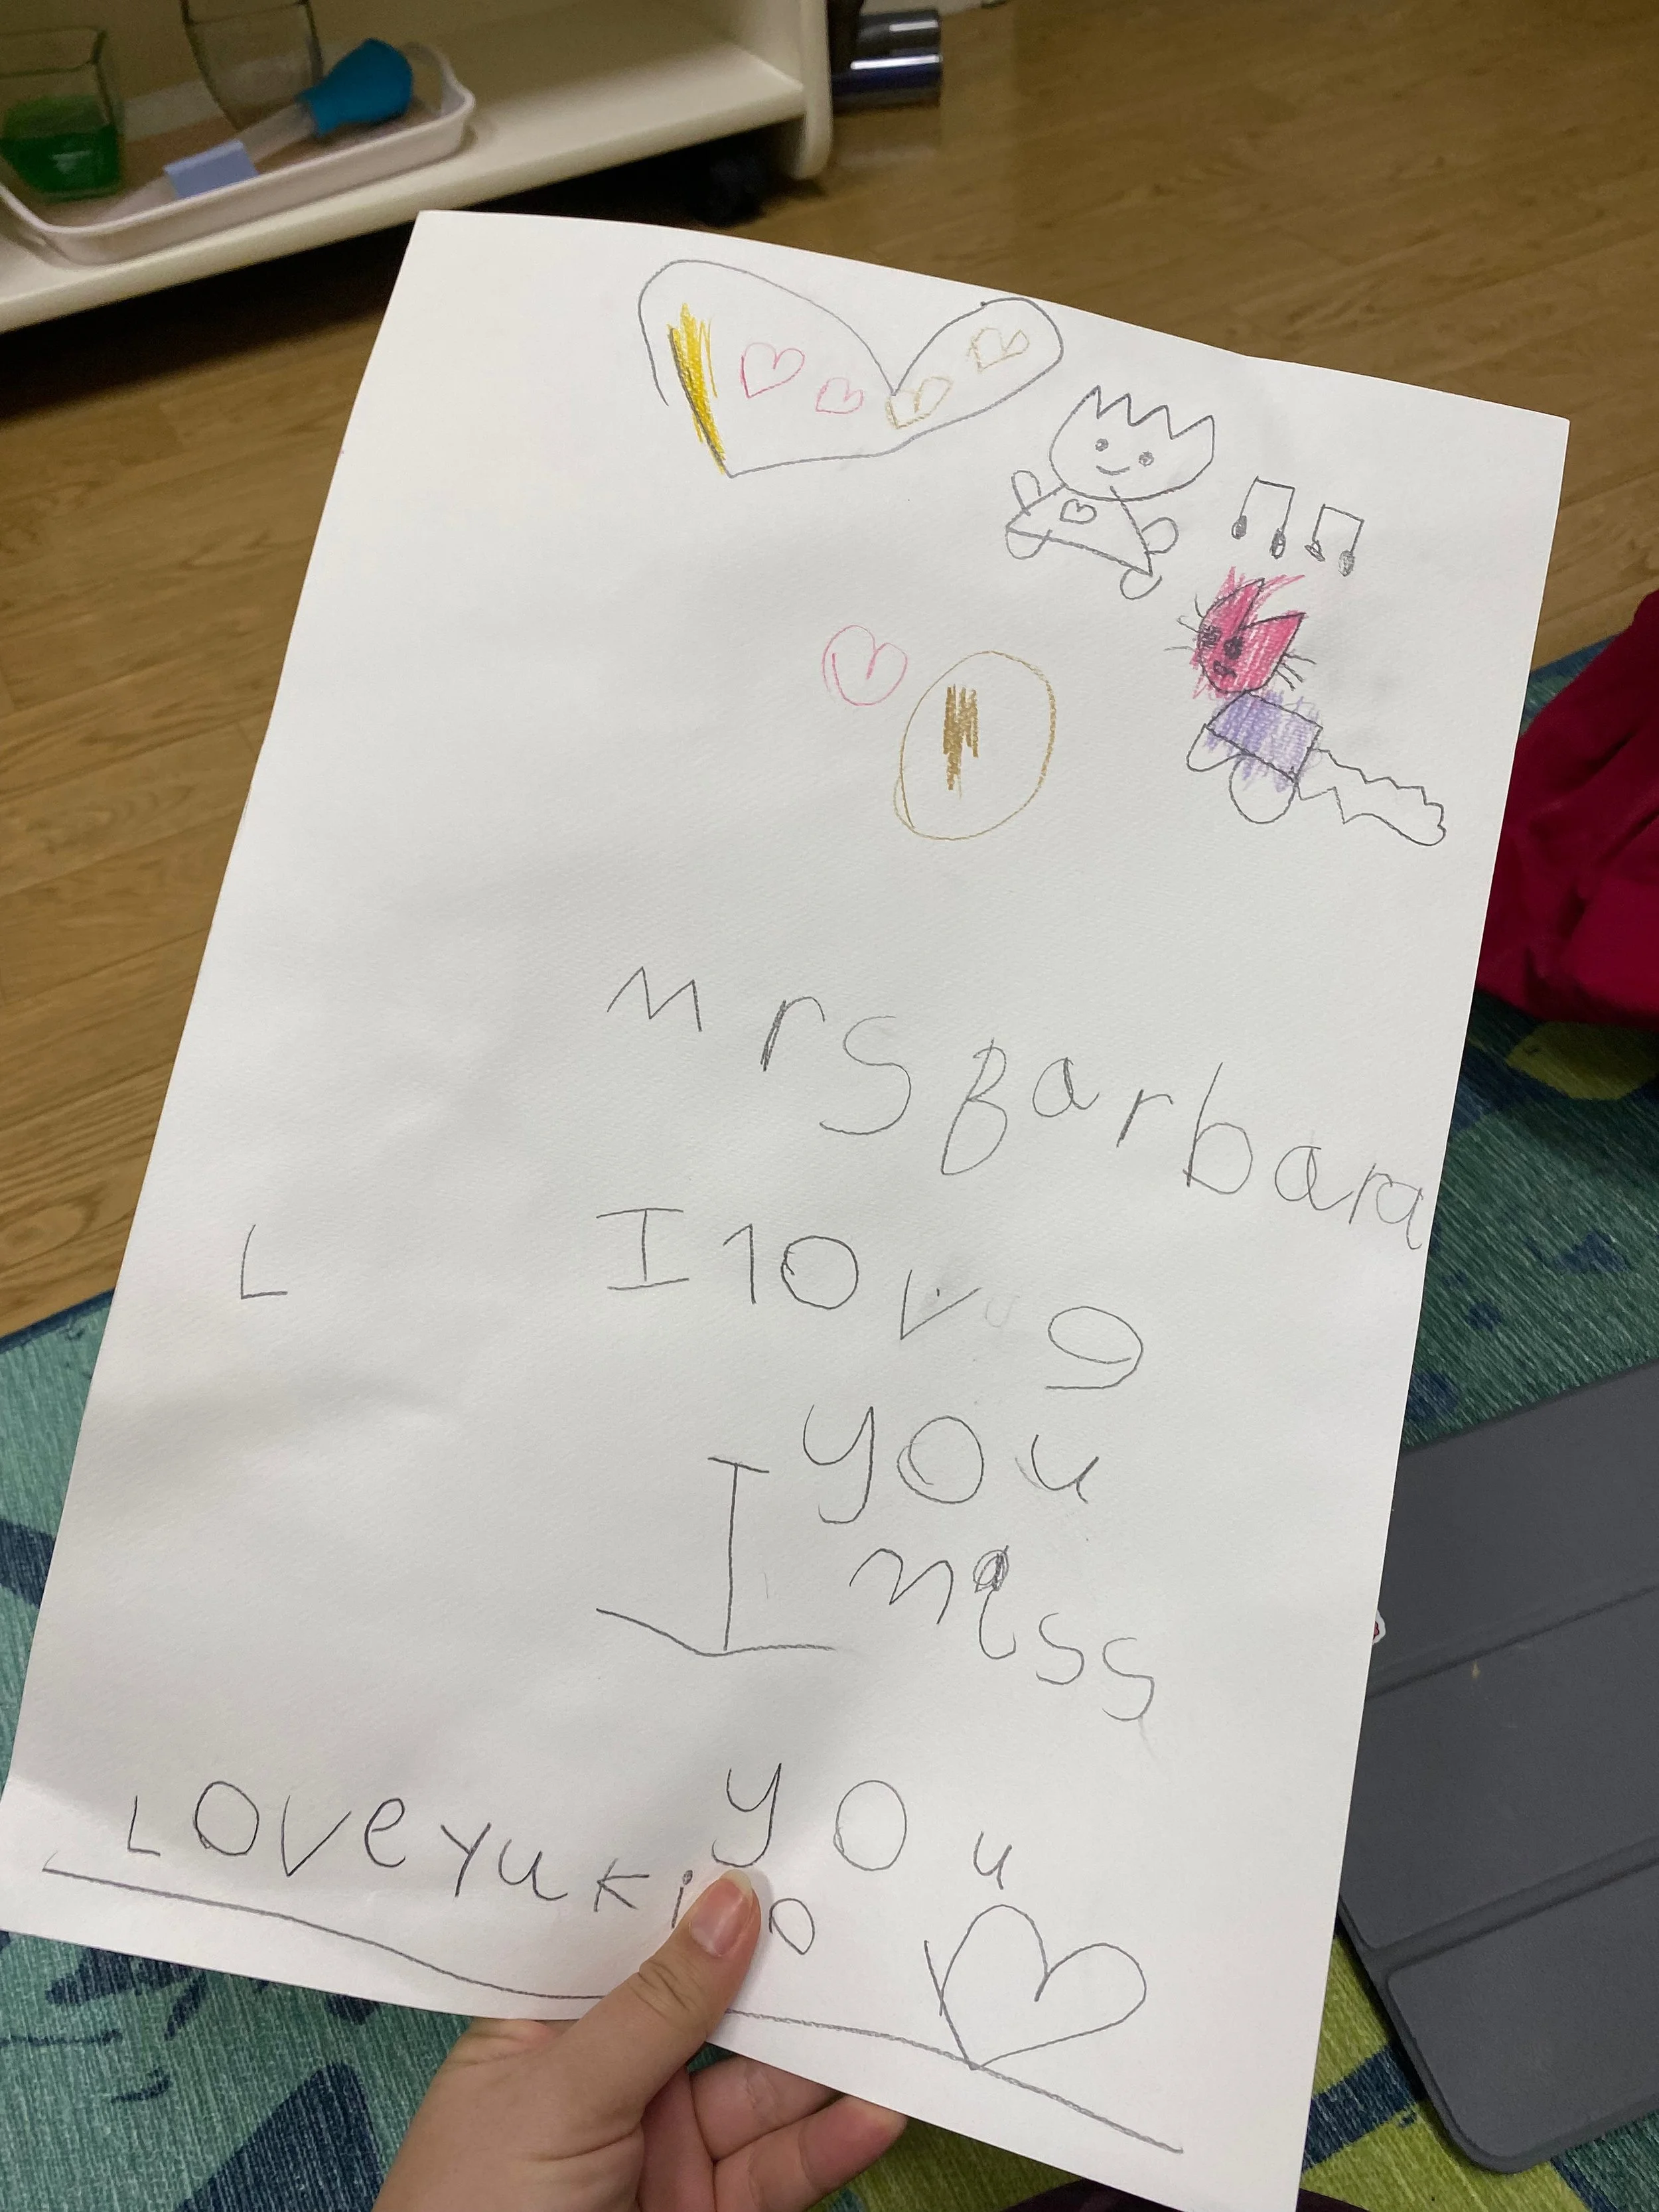 Mrs Barbara
L
I love
you
I miss
you
Love yuki